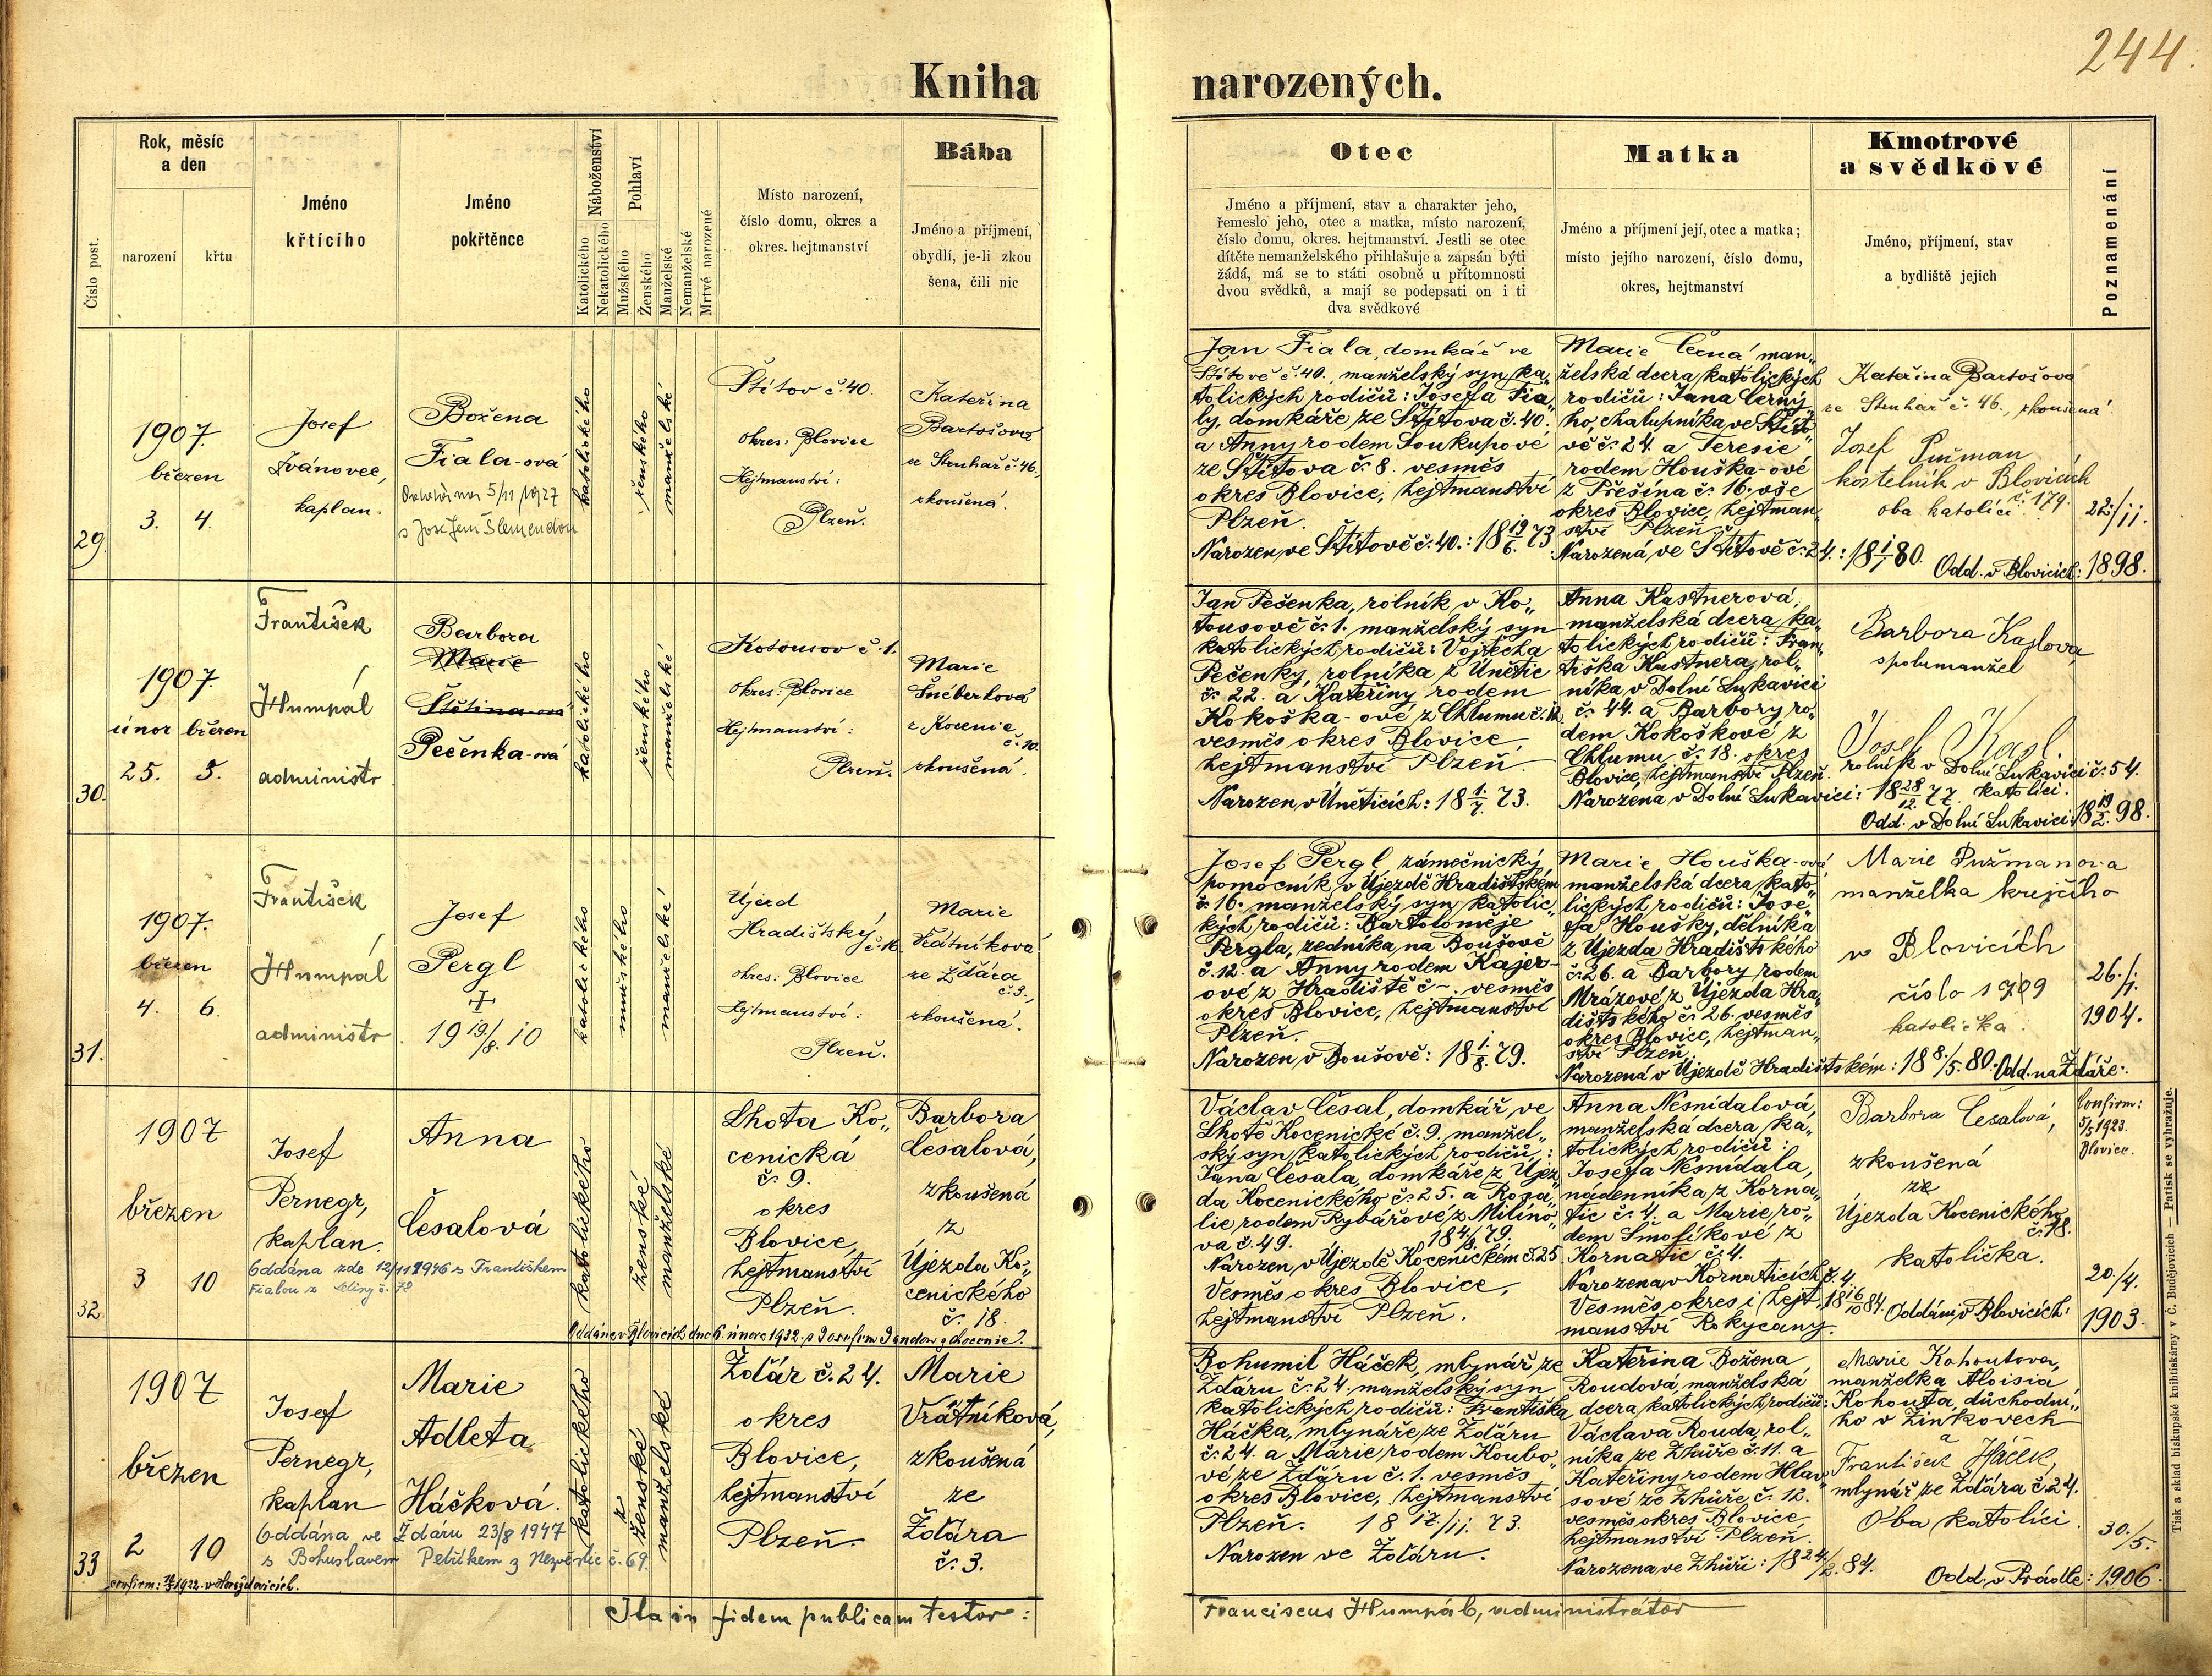 244.
Kniha narozených.
Číslo post.
Rok, měsíc
a den
narození
křtu
Jméno
křtícího
Jméno
pokřtěnce
Náboženství
Katolického
Nekatolického
Pohlaví
Mužského
Ženského
Manželské
Nemanželské
Mrtvě narozené
Místo narození,
číslo domu, okres a
okres. hejtmanství
Bába
Jméno a příjmení,
obydlí, je-li zkou
šena, čili nic
Otec
Jméno a příjmení, stav a charakter jeho,
řemeslo jeho, otec a matka, místo narození,
číslo domu, okres. hejtmanství. Jestli se otec
dítěte nemanželského přihlašuje a zapsán býti
žádá, má se to státi osobně u přítomnosti
dvou svědků, a mají se podepsati on i ti
dva svědkové
Matka
Jméno a příjmení její, otec a matka;
místo jejího narození, číslo domu,
okres, hejtmanství
Kmotrové
a svědkové
Jméno, příjmení, stav
a bydliště jejich
Poznamenání
29.
1907.
březen
3. 4.
Josef
Ivánovec,
kaplan.
Božena
Fiala-ová
5/11 1927
s Josefem Slemendou
katolického
ženského
manželské
Štítov č. 40.
okres: Blovice
Hejtmanství:
Plzeň.
Kateřina
Bartošova
ze Struhař č. 46.,
zkoušená.
Jan Fiala, domkář ve
Štítově č. 40., manželský syn ka„
tolických rodičů: Josefa Fia„
ly, domkáře ze Štítova č. 40.
a Anny rodem Soukupové
ze Štítova č. 8. vesměs
okres Blovice, hejtmanství
Plzeň.
Narozen ve Štítově č. 40.: 18 19/6. 73
Marie Černá man„
želská dcera katolických
rodičů: Jana Černý„
ho, chalupníka ve Štíto„
vě č. 24. a Teresie
rodem Houška-ové
z Přešína č. 16. vše
okres Blovice, hejtman„
ství Plzeň
Narozená ve Štítově č. 24.: 18 1/1 80.
Kateřina Bartošová
ze Struhař č. 46., zkoušená.
Josef Pužman
kostelník v Blovicích
č. 179.
oba katolíci
22./11.
Odd. v Blovicích: 1898.
30.
1907.
únor březen
25. 5.
František
Humpál
administr
Barbora
Marie
Štětina-ová
Pečenka-ová
katolického
ženského
manželské
Kotousov č. 1.
okres: Blovice
Hejtmanství:
Plzeň.
Marie
Šnéberková
z Kocenic
č. 10.
zkoušená.
Jan Pečenka, rolník v Ko„
tousově č. 1. manželský syn
katolických rodičů: Vojtěcha
Pečenky, rolníka z Únětic
č. 22. a Kateřiny rodem
Kokoška-ové z Chlumu č. 12.
vesměs okres Blovice,
hejtmanství Plzeň.
Narozen v Úněticích: 18 1./7. 73.
Anna Kastnerová,
manželská dcera ka„
tolických rodičů: Fran„
tiška Kastnera, rol„
níka v Dolní Lukavici
č. 44. a Barbory ro„
dem Kokoškové z
Chlumu č. 18. okres
Blovice, hejtmanství Plzeň.
Narozena v Dolní Lukavici: 18 28/12. 77.
Barbora Kaslova
spolumanžel
Josef Kasl.
rolník v Dolní Lukavici č. 54.
katolíci.
Odd. v Dolní Lukavici: 18 19/2. 98.
31.
1907.
březen
4. 6.
František
Humpál
administr.
Josef
Pergl
+
19 19./8. 10
katolického
mužského
manželské
Újezd
Hradištský,
č. 16.
okres: Blovice
Hejtmanství:
Plzeň.
Marie
Vrátníková
ze Žďára
č. 3.,
zkoušená.
Josef Pergl, zámečnický
pomocník v Újezdě Hradištském
č. 16. manželský syn katolic„
kých rodičů: Bartoloměje
Pergla, zedníka na Boušově
č. 12. a Anny rodem Kajer-
ové z Hradiště č -. vesměs
okres Blovice, hejtmanství
Plzeň.
Narozen v Boušově: 18 1./8. 79.
Marie Houška-ová
manželská dcera kato„
lických rodičů: Jose„
fa Houšky, dělníka
z Újezda Hradištského
č. 26. a Barbory rodem
Mrázové z Újezda Hra„
dištského č. 26. vesměs
okres Blovice, hejtman„
ství Plzeň.
Narozená v Újezdě Hradištském: 18 8./5. 80.
Marie Pužmanova
manželka krejčího
v Blovicích
číslo 179
katolička.
26./1.
1904.
Odd. na Žďáře.
32.
1907
březen
3 10
Josef
Pernegr,
kaplan.
Anna
Česalová
Oddána zde 12/11 1946 s Františkem
Fialou z Letiny č. 78
katolického
ženské
manželské
Lhota Ko„
cenická
č. 9.
okres
Blovice,
hejtmanství
Plzeň.
Barbora
Česalová,
zkoušená
z
Újezda Ko„
cenického
č. 18.
Václav Česal, domkář, ve
Lhotě Kocenické č. 9. manžel„
ský syn katolických rodičů:
Jana Česala, domkáře z Újez„
da Kocenického č. 25. a Rosa„
lie rodem Rybářové z Milíno„
va č. 49. 18 4./8. 79.
Narozen, v Újezdě Kocenickém č. 25
Vesměs okres Blovice,
hejtmanství Plzeň.
Anna Nesnídalová,
manželská dcera ka„
tolických rodičů:
Josefa Nesnídala,
nádenníka z Korna„
tic č. 4. a Marie ro„
dem Smolíkové z
Kornatic č. 4.
Narozena, v Kornaticích č. 4.
Vesměs okres i hejt„ 18 16/10 84.
manství Rokycany.
Barbora Česalová,
zkoušená
ze
Újezda Kocenického
č. 18.
katolička.
Confirm:
5/5 1923.
Blovice.
20./4.
Oddáni v Blovicích: 1903.
33
1907
březen
2 10
Josef
Pernegr,
kaplan
Marie
Adleta
Háčková.
Oddána ve Ždáru 23/8 1947
s Bohuslavem Petříkem z Nezvěstic č. 69.
katolického
z
ženské
manželské
Žďár č. 24.
okres
Blovice,
hejtmanství
Plzeň.
Marie
Vrátníková,
zkoušená
ze
Žďára
č. 3.
Bohumil Háček, mlynář ze
Žďáru č. 24. manželský syn
katolických rodičů: Františka
Háčka, mlynáře ze Žďáru
č. 24. a Marie rodem Koubo„
vé ze Žďáru č. 1. vesměs
okres Blovice, hejtmanství
Plzeň. 18 17./11. 73.
Narozen ve Žďáru.
Kateřina Božena
Roudová, manželská
dcera katolických rodičů:
Václava Rouda, rol„
níka ze Zhůře č. 11. a
Kateřiny rodem Hlav„
sové ze Zhůře č. 12.
vesměs okres Blovice,
hejtmanství Plzeň.
Narozena ve Zhůři: 18 24./2. 84.
Marie Kohoutova,
manželka Aloisia
Kohouta, důchodní„
ho v Žinkovech
a
František Háček,
mlynář ze Žďára č. 24.
Oba katolíci.
30./5.
Odd. v Prádle: 1906.
Ita in fidem publicam testor: Franciscus Humpál, administrátor
Tisk a sklad biskupské knihtiskárny v Č. Budějovicích — Patisk se vyhražuje.